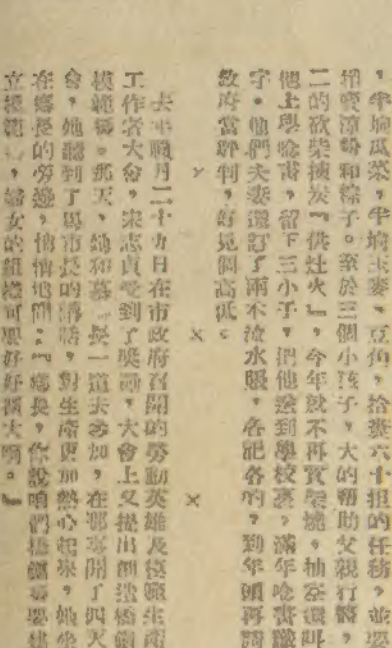 ，半坰瓜菜，半坰玉麥、豆角，拾糞六十担的任務，並要
招賣凉粉和粽子。至於三個小孩子，大的幫助父親行醫，
二的砍柴挾炭『供灶火』，今年就不再買柴燒，抽空還叫
他上學唸書，留下三小子，把他送到學校裏，滿年唸書識
字。他們夫妻還訂了兩不沾水賬，各記各的，到年頭再請
政府當評判，好見個高低。
× × ×
去年臘月二十九日在市政府召開的勞動英雄及模範生產
工作者大會，宋志貞受到了獎勵，大會上又提出創造橋鎮
模範鄉。那天，她和慕鄉長一道去參加，在那裏開了四天
會，她聽到了馬市長的講話，對生產更加熱心起來，她坐
在鄉長的旁邊，悄悄地問：『鄉長，你說咱們橋鎮鄉要建
立模範鄉，婦女的組織可要好好擴大啊。』